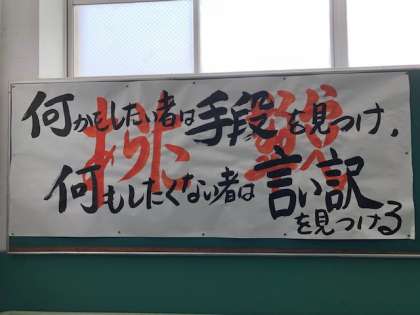 何かをしたい者は手段を見つけ、
何もしたくない者は言い訳
を見つける